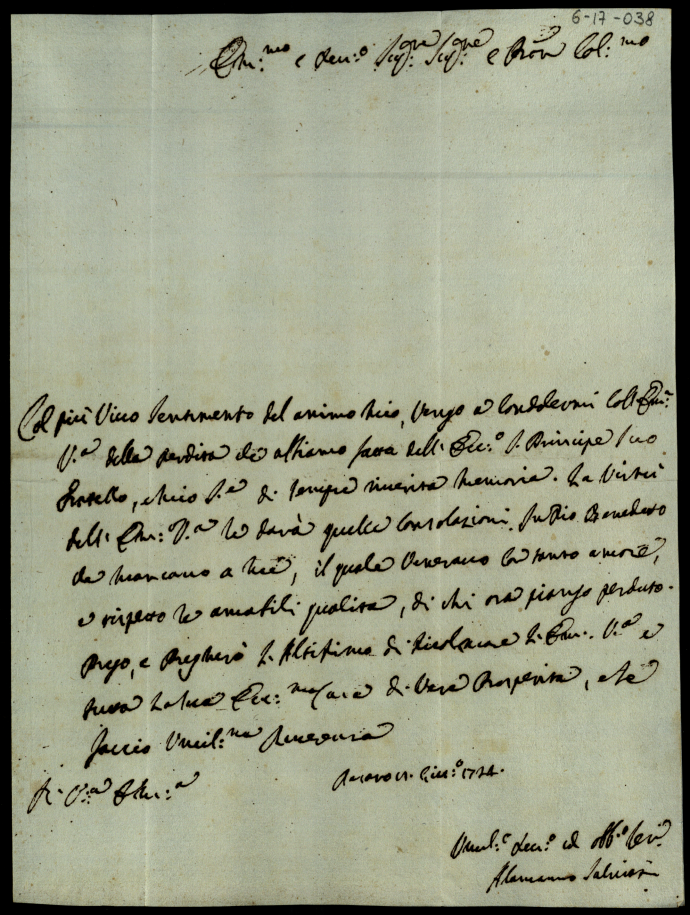 6-17-038
Em:mo e Rev:o Sig:re Sig:re e Pron Col:mo
Col più Vivo Sentimento del animo mio, Vengo a Condolermi Coll Em:
V:a della perdita che abbiamo fatta dell' Ecc:o S. Principe Suo
Fratello, e mio S:e di sempre riverita memoria. La Virtù
dell' Em: V:a le darà quelle Consolazioni, In Dio Benedetto
che mancano a me, il quale Veneravo con tanto amore,
e rispetto le amabili qualità, di chi ora piango perduto.
Prego, e Pregherò L'Altissimo di Ricolmare L'Em:. V:a e
tutta La Sua Ecc:ma Casa di Vere Prosperità, e Le
faccio Umil:ma Riverenza
Di V:a Em:a
Pesaro Giu:o 1724.
Umil:e Dev:o ed obb:o Ser:
Alamanno Salviati